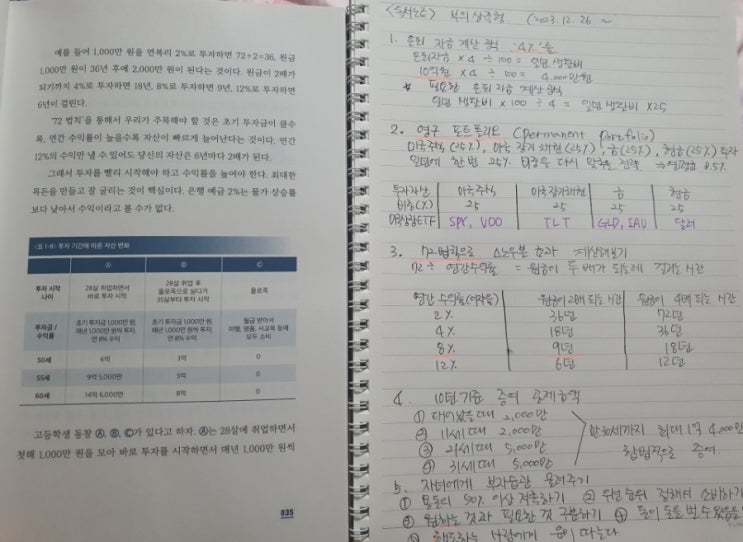 예를 들어 1,000만 원을 연복리 2%로 투자하면 72÷2=36, 원금
1,000만 원이 36년 후에 2,000만 원이 된다는 것이다. 원금이 2배가
되기까지 4%로 투자하면 18년, 8%로 투자하면 9년, 12%로 투자하면
6년이 걸린다.
'72 법칙'을 통해서 우리가 주목해야 할 것은 초기 투자금이 클수
록, 연간 수익률이 높을수록 자산이 빠르게 늘어난다는 것이다. 연간
12%의 수익만 낼 수 있어도 당신의 자산은 6년마다 2배가 된다.
그래서 투자를 빨리 시작해야 하고 수익률을 높여야 한다. 최대한
목돈을 만들고 잘 굴리는 것이 핵심이다. 은행 예금 2%는 물가 상승률
보다 낮아서 수익이라고 볼 수가 없다.
<표 1-8> 투자 기간에 따른 자산 변화
Ⓐ Ⓑ Ⓒ
투자 시작 나이 28살 취업하면서 바로 투자 시작 28살 취업 후 욜로족으로 살다가 35살부터 투자 시작 욜로족
투자금/수익률 초기 투자금 1,000만 원, 매년 1,000만 원씩 투자, 연 8% 수익 초기 투자금 1,000만 원, 매년 1,000만 원씩 투자, 연 8% 수익 월급 받아서 여행, 명품, 사교육 등에 모두 소비
50세 6억 3억 0
55세 9억 5,000만 5억 0
60세 14억 6,000만 8억 0
고등학생 동창 Ⓐ, Ⓑ, Ⓒ가 있다고 하자. Ⓐ는 28살에 취업하면서
첫해 1,000만 원을 모아 바로 투자를 시작하면서 매년 1,000만 원씩
035
<독서노트> 부의 상준형 (2023.12.26 ~
1. 은퇴 자금 계산 공식 '4%'룰
은퇴자금 × 4 ÷ 100 = 일년 생활비
10억원 × 4 ÷ 100 = 4,000만원
* 필요한 은퇴 자금 계산 공식
일년 생활비 × 100 ÷ 4 = 일년 생활비 × 25
2. 영구 포트폴리오 (permanent portfolio)
미국주식(25%), 미국 장기채권(25%), 금(25%), 현금(25%) 투자
일년에 한번 25% 비중을 다시 맞추는 전략 ⇒ 연평균 8.5%
투자자산 미국주식 미국장기채권 금 현금
비중(%) 25 25 25 25
미국상장ETF SPY, VOO TLT GLD, IAU 달러
3. 72법칙으로 스노우볼 효과 예상해보기
72 ÷ 연간수익률 = 원금이 두 배가 되는데 걸리는 시간
연간 수익률(이자율) 원금이 2배 되는 시간 원금이 4배 되는 시간
2% 36년 72년
4% 18년 36년
8% 9년 18년
12% 6년 12년
4. 10년 기준 증여 공제금액
① 태어났을때 2,000만
② 11세때 2,000만
③ 21세때 5,000만
④ 31세때 5,000만
만 30세까지 최대 1억 4,000만
합법적으로 증여
5. 자녀에게 부자습관 물려주기
① 용돈의 50% 이상 저축하기 ② 우선순위 정해서 소비하기
③ 원하는 것과 필요한 것 구분하기 ④ 돈이 돈을 벌 수 있음을
사람에게 운이 따른다